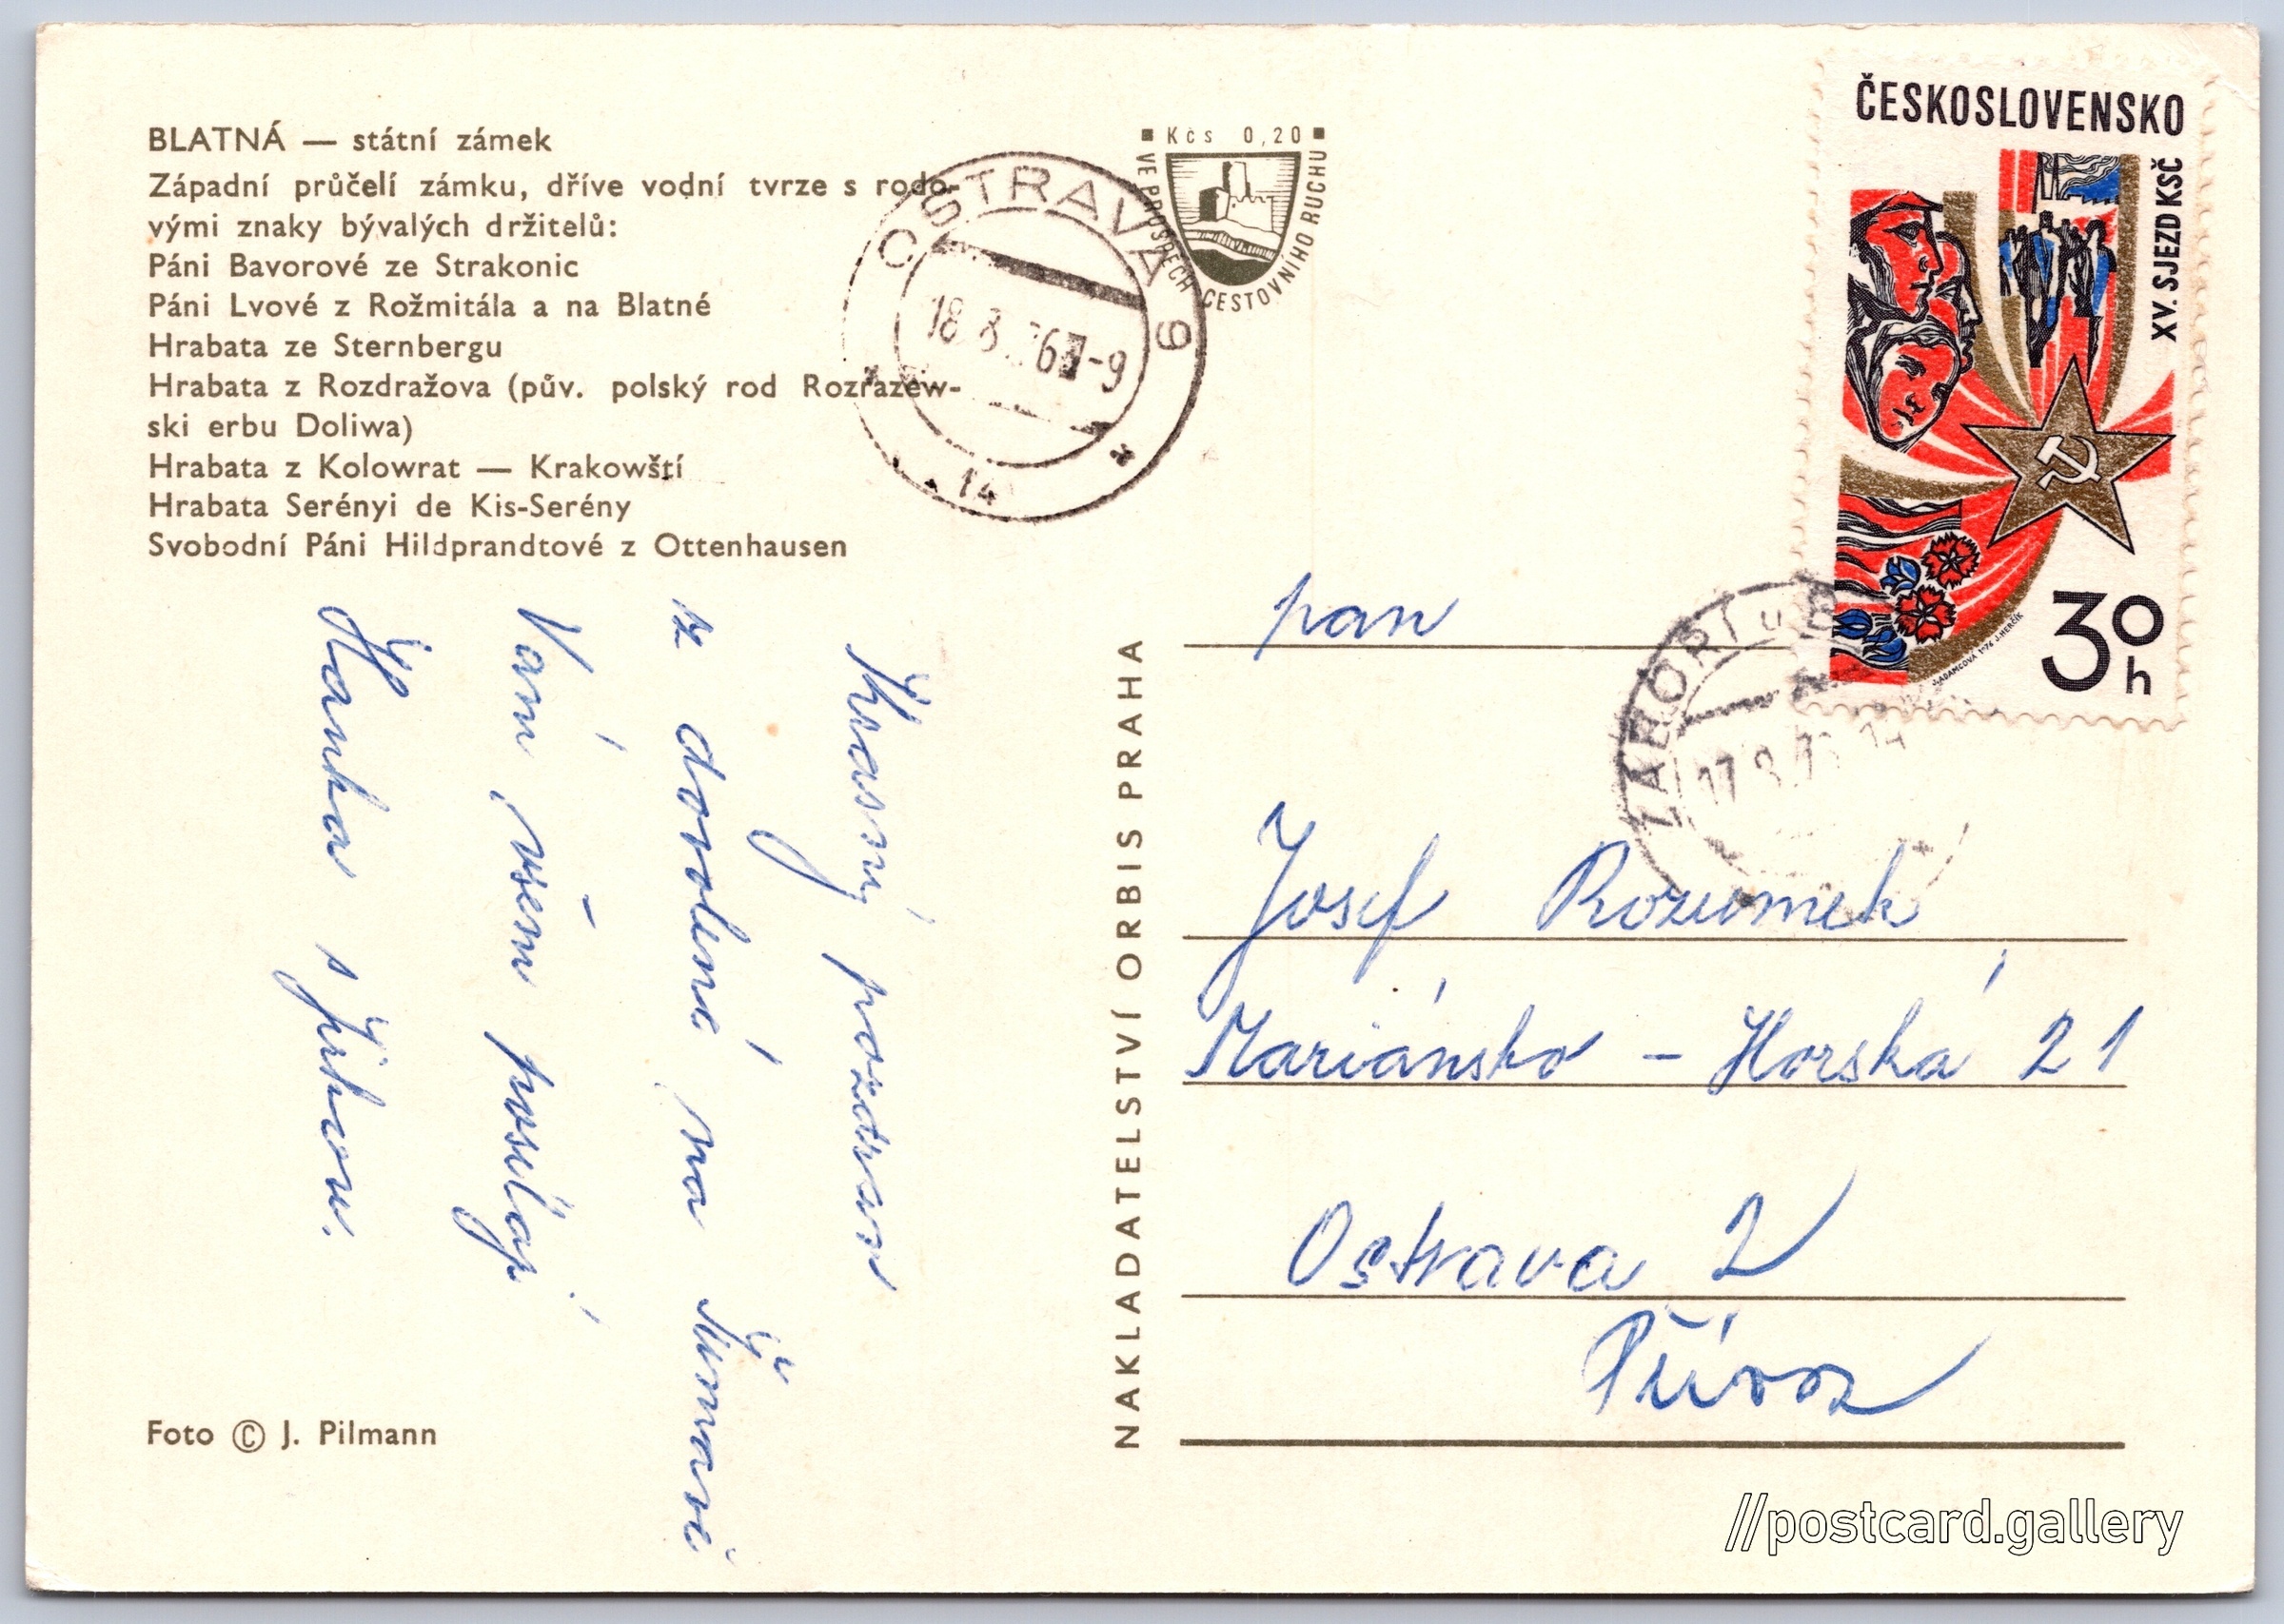 BLATNÁ — státní zámek
Západní průčelí zámku, dříve vodní tvrze s rodo-
vými znaky bývalých držitelů:
Páni Bavorové ze Strakonic
Páni Lvové z Rožmitála a na Blatné
Hrabata ze Sternbergu
Hrabata z Rozdražova (pův. polský rod Rozrazew-
ski erbu Doliwa)
Hrabata z Kolowrat — Krakowští
Hrabata Serényi de Kis-Serény
Svobodní Páni Hildprandtové z Ottenhausen
Krásný pozdrav
z dovolené na Šumavě
Vám všem posílají
Hanka s Jirkou.
Foto © J. Pilmann
NAKLADATELSTVÍ ORBIS PRAHA
Kčs 0,20
VE PROSPĚCH CESTOVNÍHO RUCHU
OSTRAVA 9
18.8.76-9
14
ČESKOSLOVENSKO
XV. SJEZD KSČ
J. ADAMCOVÁ 1976 J. HERČÍK
30 h
ZÁBOŘÍ u B
17.8.76
pan
Josef Rozumek
Mariánsko - Horská 21
Ostrava 2
Přívoz
//postcard.gallery